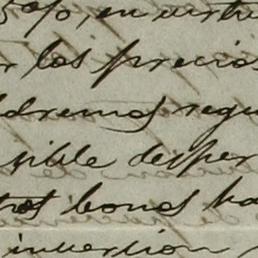 5%, en virtu
r los precios
ldremos regu
sible desper
tros bonos ha
inversion